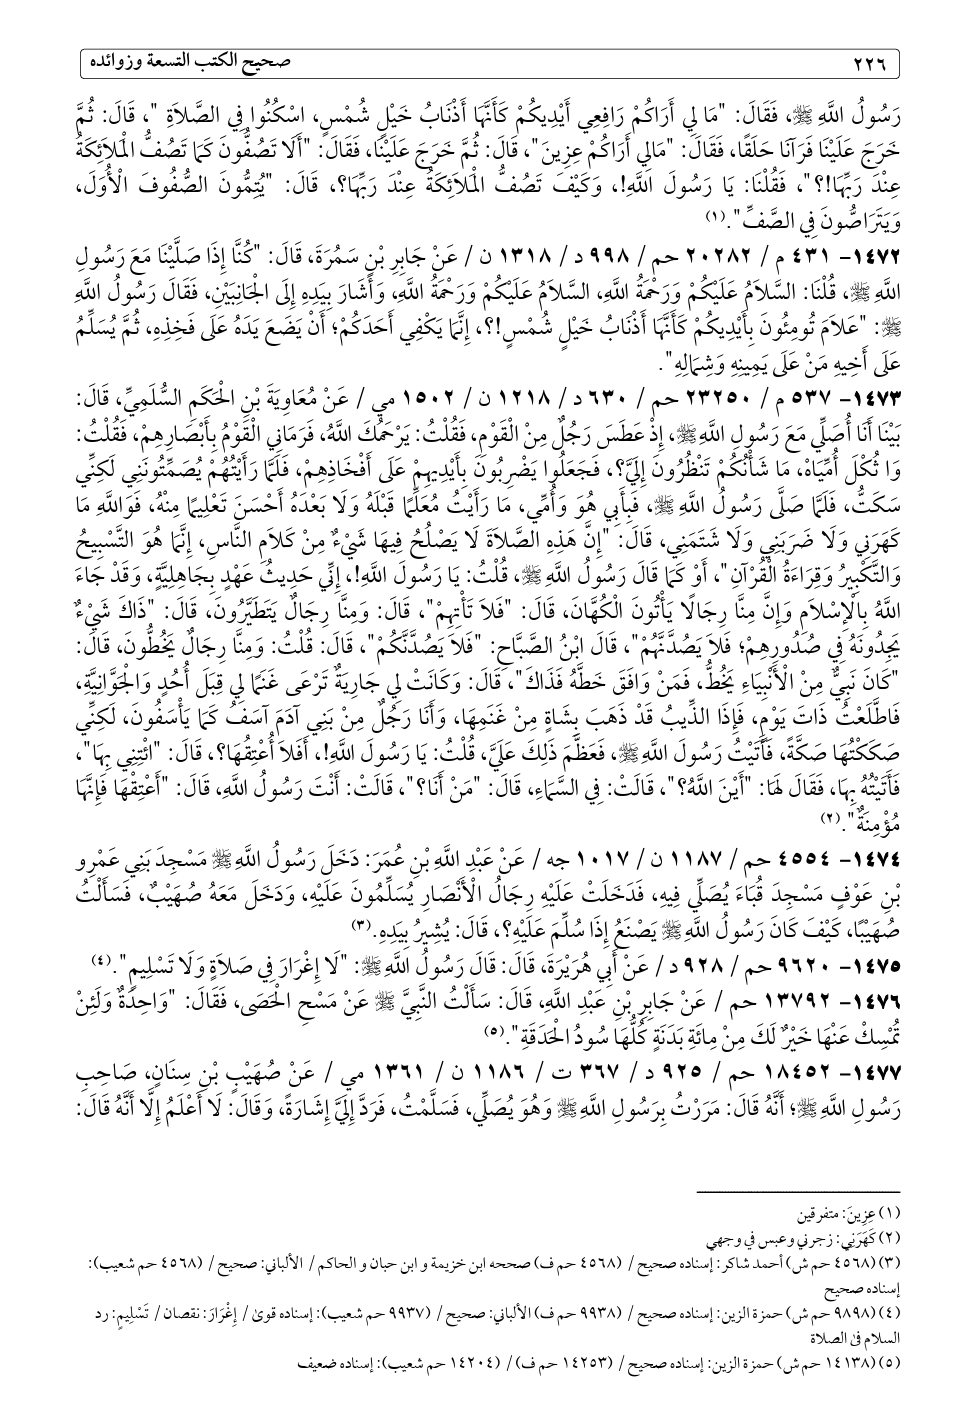 ٢٢٦ صحيح الكتب التسعة وزوائده
رَسُولُ اللَّهِ ﷺ، فَقَالَ: "مَا لِي أَرَاكُمْ رَافِعِي أَيْدِيكُمْ كَأَنَّهَا أَذْنَابُ خَيْلٍ شُمْسٍ، اسْكُنُوا فِي الصَّلَاةِ "، قَالَ: ثُمَّ
خَرَجَ عَلَيْنَا فَرَآنَا حَلَقًا، فَقَالَ: "مَالِي أَرَاكُمْ عِزِينَ"، قَالَ: ثُمَّ خَرَجَ عَلَيْنَا، فَقَالَ: "أَلَا تَصُفُّونَ كَمَا تَصُفُّ الْمَلَائِكَةُ
عِنْدَ رَبِّهَا!؟"، فَقُلْنَا: يَا رَسُولَ اللَّهِ!، وَكَيْفَ تَصُفُّ الْمَلَائِكَةُ عِنْدَ رَبِّهَا؟، قَالَ: "يُتِمُّونَ الصُّفُوفَ الْأُوَلَ،
وَيَتَرَاصُّونَ فِي الصَّفِّ".(١)
١٤٧٢- ٤٣١ م / ٢٠٢٨٢ حم / ٩٩٨ د / ١٣١٨ ن / عَنْ جَابِرِ بْنِ سَمُرَةَ، قَالَ: "كُنَّا إِذَا صَلَّيْنَا مَعَ رَسُولِ
اللَّهِ ﷺ، قُلْنَا: السَّلَامُ عَلَيْكُمْ وَرَحْمَةُ اللَّهِ، السَّلَامُ عَلَيْكُمْ وَرَحْمَةُ اللَّهِ، وَأَشَارَ بِيَدِهِ إِلَى الْجَانِبَيْنِ، فَقَالَ رَسُولُ اللَّهِ
ﷺ: "عَلَامَ تُومِئُونَ بِأَيْدِيكُمْ كَأَنَّهَا أَذْنَابُ خَيْلٍ شُمْسٍ!؟، إِنَّمَا يَكْفِي أَحَدَكُمْ؛ أَنْ يَضَعَ يَدَهُ عَلَى فَخِذِهِ، ثُمَّ يُسَلِّمُ
عَلَى أَخِيهِ مَنْ عَلَى يَمِينِهِ وَشِمَالِهِ".
١٤٧٣- ٥٣٧ م / ٢٣٢٥٠ حم / ٦٣٠ د / ١٢١٨ ن / ١٥٠٢ مي / عَنْ مُعَاوِيَةَ بْنِ الْحَكَمِ السُّلَمِيِّ، قَالَ:
بَيْنَا أَنَا أُصَلِّي مَعَ رَسُولِ اللَّهِ ﷺ، إِذْ عَطَسَ رَجُلٌ مِنْ الْقَوْمِ، فَقُلْتُ: يَرْحَمُكَ اللَّهُ، فَرَمَانِي الْقَوْمُ بِأَبْصَارِهِمْ، فَقُلْتُ:
وَا ثُكْلَ أُمِّيَاهْ، مَا شَأْنُكُمْ تَنْظُرُونَ إِلَيَّ؟، فَجَعَلُوا يَضْرِبُونَ بِأَيْدِيهِمْ عَلَى أَفْخَاذِهِمْ، فَلَمَّا رَأَيْتُهُمْ يُصَمِّتُونَنِي لَكِنِّي
سَكَتُّ، فَلَمَّا صَلَّى رَسُولُ اللَّهِ ﷺ، فَبِأَبِي هُوَ وَأُمِّي، مَا رَأَيْتُ مُعَلِّمًا قَبْلَهُ وَلَا بَعْدَهُ أَحْسَنَ تَعْلِيمًا مِنْهُ، فَوَاللَّهِ مَا
كَهَرَنِي وَلَا ضَرَبَنِي وَلَا شَتَمَنِي، قَالَ: "إِنَّ هَذِهِ الصَّلَاةَ لَا يَصْلُحُ فِيهَا شَيْءٌ مِنْ كَلَامِ النَّاسِ، إِنَّمَا هُوَ التَّسْبِيحُ
وَالتَّكْبِيرُ وَقِرَاءَةُ الْقُرْآنِ"، أَوْ كَمَا قَالَ رَسُولُ اللَّهِ ﷺ، قُلْتُ: يَا رَسُولَ اللَّهِ!، إِنِّي حَدِيثُ عَهْدٍ بِجَاهِلِيَّةٍ، وَقَدْ جَاءَ
اللَّهُ بِالْإِسْلَامِ وَإِنَّ مِنَّا رِجَالًا يَأْتُونَ الْكُهَّانَ، قَالَ: "فَلَا تَأْتِهِمْ"، قَالَ: وَمِنَّا رِجَالٌ يَتَطَيَّرُونَ، قَالَ: "ذَاكَ شَيْءٌ
يَجِدُونَهُ فِي صُدُورِهِمْ؛ فَلَا يَصُدَّنَّهُمْ"، قَالَ ابْنُ الصَّبَّاحِ: "فَلَا يَصُدَّنَّكُمْ"، قَالَ: قُلْتُ: وَمِنَّا رِجَالٌ يَخُطُّونَ، قَالَ:
"كَانَ نَبِيٌّ مِنْ الْأَنْبِيَاءِ يَخُطُّ، فَمَنْ وَافَقَ خَطَّهُ فَذَاكَ"، قَالَ: وَكَانَتْ لِي جَارِيَةٌ تَرْعَى غَنَمًا لِي قِبَلَ أُحُدٍ وَالْجَوَّانِيَّةِ،
فَاطَّلَعْتُ ذَاتَ يَوْمٍ، فَإِذَا الذِّيبُ قَدْ ذَهَبَ بِشَاةٍ مِنْ غَنَمِهَا، وَأَنَا رَجُلٌ مِنْ بَنِي آدَمَ آسَفُ كَمَا يَأْسَفُونَ، لَكِنِّي
صَكَكْتُهَا صَكَّةً، فَأَتَيْتُ رَسُولَ اللَّهِ ﷺ، فَعَظَّمَ ذَلِكَ عَلَيَّ، قُلْتُ: يَا رَسُولَ اللَّهِ!، أَفَلَا أُعْتِقُهَا؟، قَالَ: "ائْتِنِي بِهَا"،
فَأَتَيْتُهُ بِهَا، فَقَالَ لَهَا: "أَيْنَ اللَّهُ؟"، قَالَتْ: فِي السَّمَاءِ، قَالَ: "مَنْ أَنَا؟"، قَالَتْ: أَنْتَ رَسُولُ اللَّهِ، قَالَ: "أَعْتِقْهَا فَإِنَّهَا
مُؤْمِنَةٌ".(٢)
١٤٧٤- ٤٥٥٤ حم / ١١٨٧ ن / ١٠١٧ جه / عَنْ عَبْدِ اللَّهِ بْنِ عُمَرَ: دَخَلَ رَسُولُ اللَّهِ ﷺ مَسْجِدَ بَنِي عَمْرِو
بْنِ عَوْفٍ مَسْجِدَ قُبَاءَ يُصَلِّي فِيهِ، فَدَخَلَتْ عَلَيْهِ رِجَالُ الْأَنْصَارِ يُسَلِّمُونَ عَلَيْهِ، وَدَخَلَ مَعَهُ صُهَيْبٌ، فَسَأَلْتُ
صُهَيْبًا، كَيْفَ كَانَ رَسُولُ اللَّهِ ﷺ يَصْنَعُ إِذَا سُلِّمَ عَلَيْهِ؟، قَالَ: يُشِيرُ بِيَدِهِ.(٣)
١٤٧٥- ٩٦٢٠ حم / ٩٢٨ د / عَنْ أَبِي هُرَيْرَةَ، قَالَ: قَالَ رَسُولُ اللَّهِ ﷺ: "لَا إِغْرَارَ فِي صَلَاةٍ وَلَا تَسْلِيمٍ".(٤)
١٤٧٦- ١٣٧٩٢ حم / عَنْ جَابِرِ بْنِ عَبْدِ اللَّهِ، قَالَ: سَأَلْتُ النَّبِيَّ ﷺ عَنْ مَسْحِ الْحَصَى، فَقَالَ: "وَاحِدَةٌ وَلَئِنْ
تُمْسِكْ عَنْهَا خَيْرٌ لَكَ مِنْ مِائَةِ بَدَنَةٍ كُلُّهَا سُودُ الْحَدَقَةِ".(٥)
١٤٧٧- ١٨٤٥٢ حم / ٩٢٥ د / ٣٦٧ ت / ١١٨٦ ن / ١٣٦١ مي / عَنْ صُهَيْبِ بْنِ سِنَانٍ، صَاحِبِ
رَسُولِ اللَّهِ ﷺ؛ أَنَّهُ قَالَ: مَرَرْتُ بِرَسُولِ اللَّهِ ﷺ وَهُوَ يُصَلِّي، فَسَلَّمْتُ، فَرَدَّ إِلَيَّ إِشَارَةً، وَقَالَ: لَا أَعْلَمُ إِلَّا أَنَّهُ قَالَ:
(١) عِزِينَ: متفرقين
(٢) كَهَرَنِي: زجرني وعبس في وجهي
(٣) (٤٥٦٨ حم ش) أحمد شاكر: إسناده صحيح / (٤٥٦٨ حم ف) صححه ابن خزيمة و ابن حبان و الحاكم / الألباني: صحيح / (٤٥٦٨ حم شعيب):
إسناده صحيح
(٤) (٩٨٩٨ حم ش) حمزة الزين: إسناده صحيح / (٩٩٣٨ حم ف) الألباني: صحيح / (٩٩٣٧ حم شعيب): إسناده قوىٰ / إِغْرَارَ: نقصان / تَسْلِيمٍ: رد
السلام فى الصلاة
(٥) (١٤١٣٨ حم ش) حمزة الزين: إسناده صحيح / (١٤٢٥٣ حم ف) / (١٤٢٠٤ حم شعيب): إسناده ضعيف